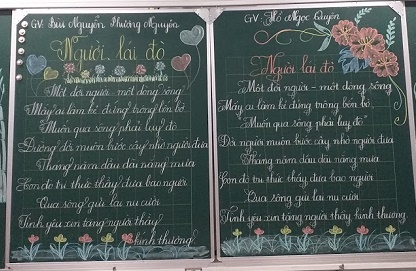 GV: Bùi Nguyễn Phương Nguyên
Người lái đò
Một đời người - một dòng sông
Mấy ai làm kẻ đứng trông bến bờ
"Muốn qua sông phải luỵ đò"
Đường đời muôn bước cậy nhờ người đưa
Tháng năm dầu dãi nắng mưa
Con đò tri thức thầy đưa bao người
Qua sông gửi lại nụ cười
Tình yêu xin tặng người thầy
kính thương!
GV: Hồ Ngọc Quyên
Người lái đò
Một đời người - một dòng sông
Mấy ai làm kẻ đứng trông bến bờ
"Muốn qua sông phải luỵ đò"
Đời người muôn bước cậy nhờ người đưa
Tháng năm dầu dãi nắng mưa
Con đò tri thức thầy đưa bao người
Qua sông gửi lại nụ cười
Tình yêu xin tặng người thầy kính thương